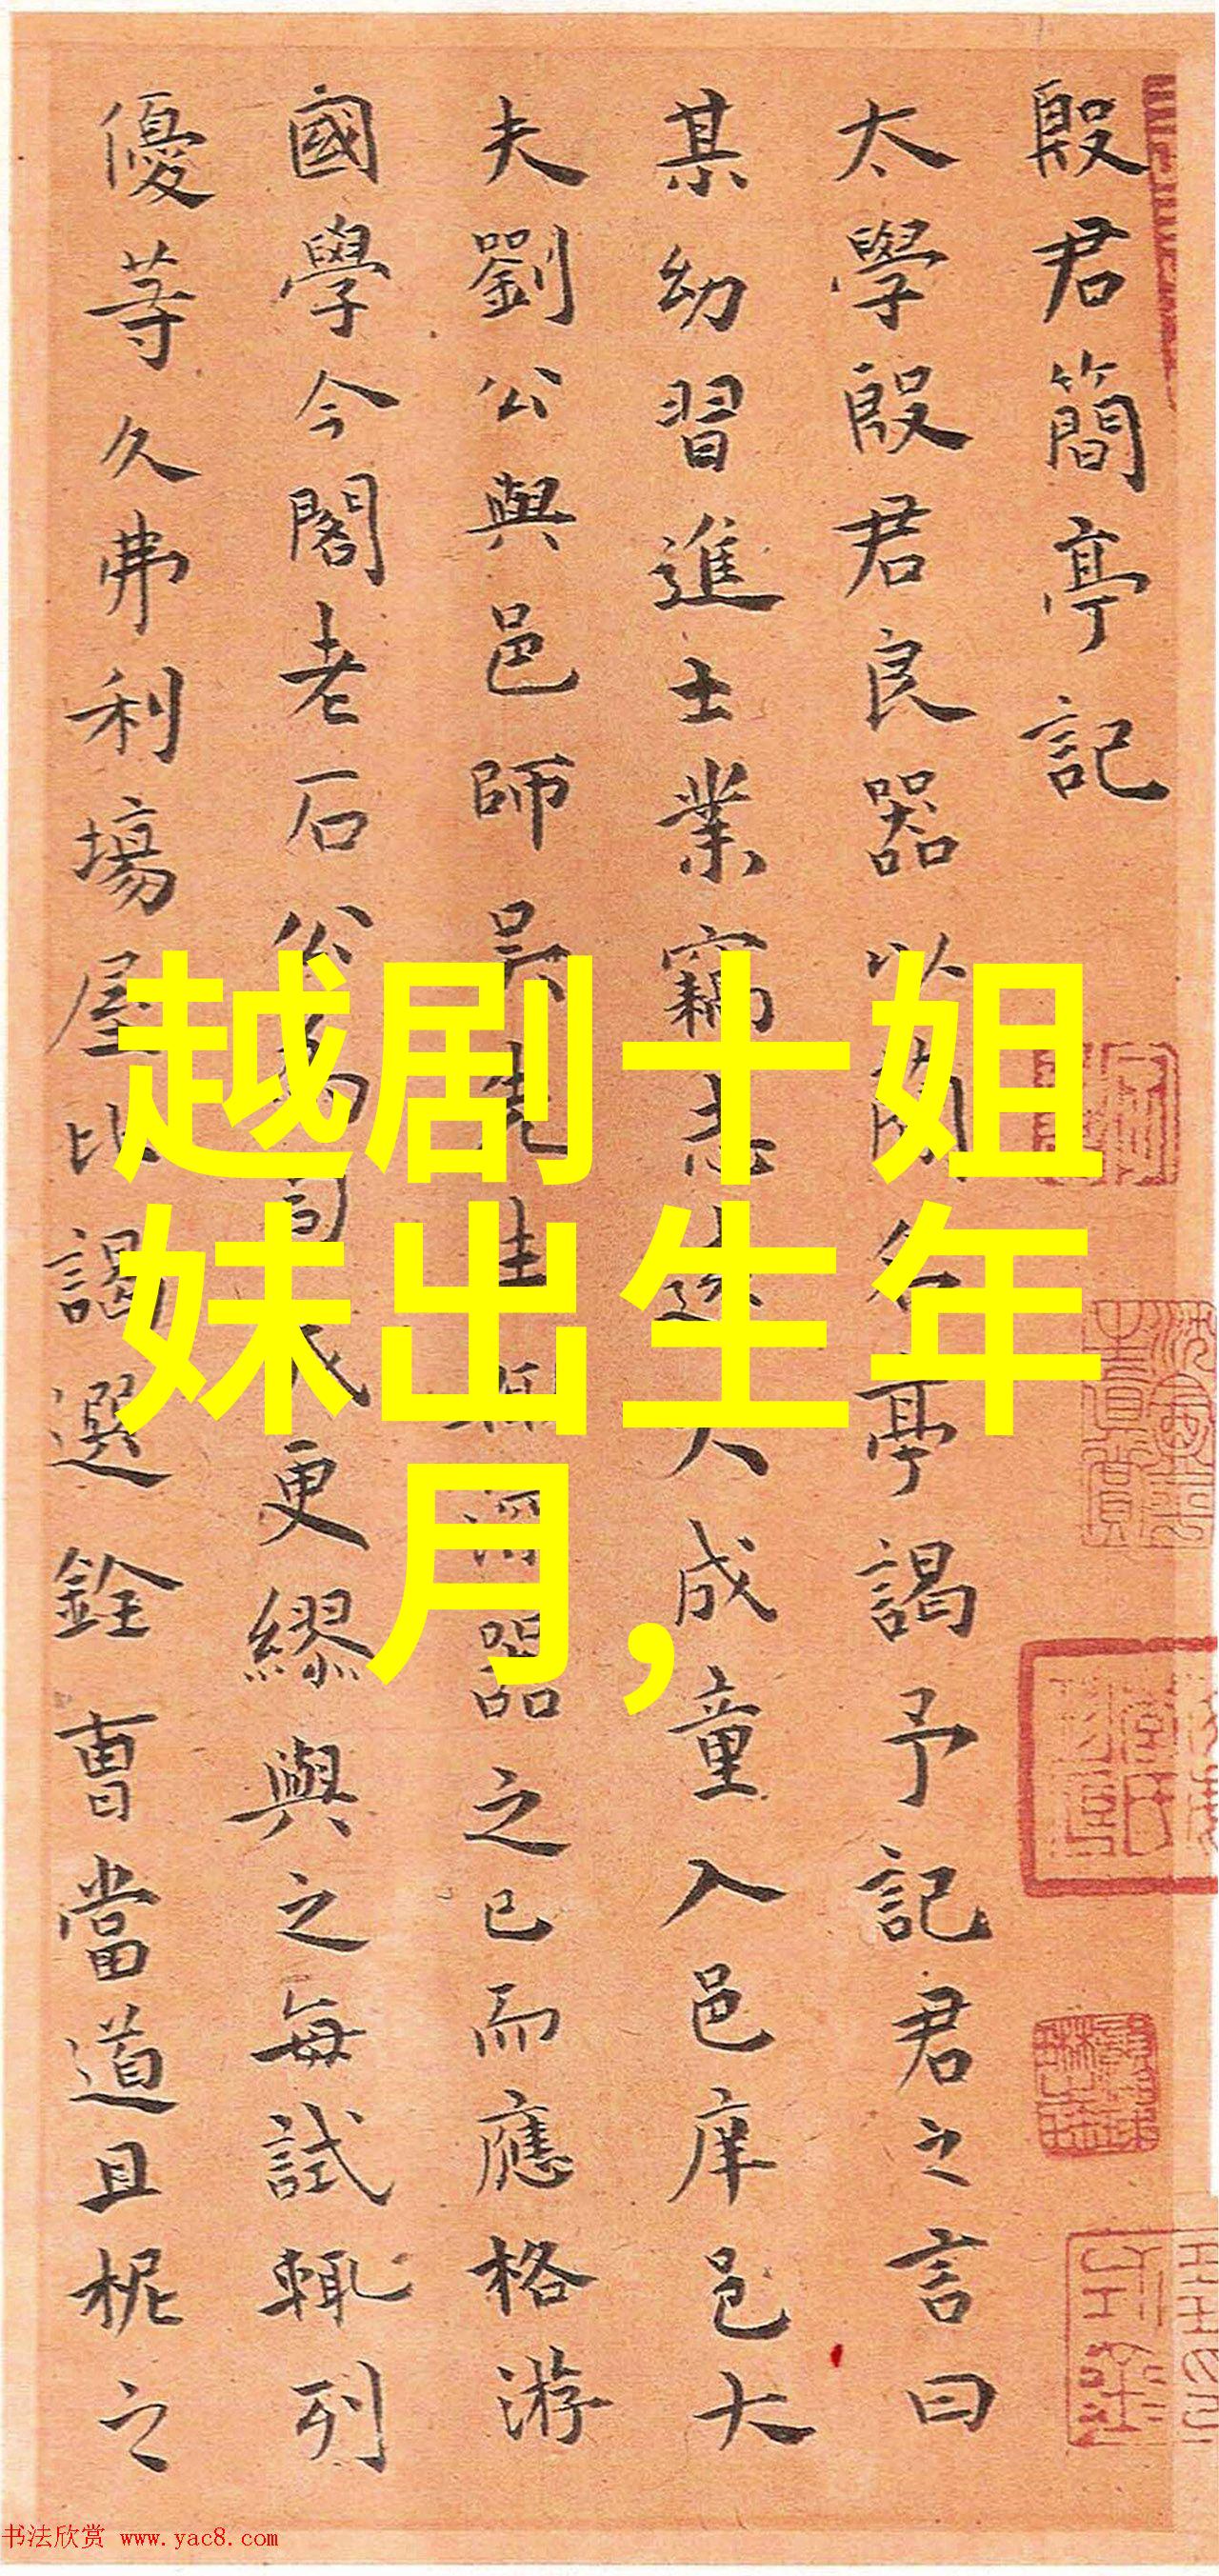 殷君簡亭記
太學殷君良器以簡名亭謁予記君之言曰
某幼習進士業竊志迭大成童入邑庠邑大
夫劉公與邑師吳先生器之已而應格游
國學今閣老石公為司成更繆與之每試輒列
優等久弗利場屋比謁選銓曹當道且柅之
越剧十姐
妹出生年
月,
书法欣赏 www.yac8.com